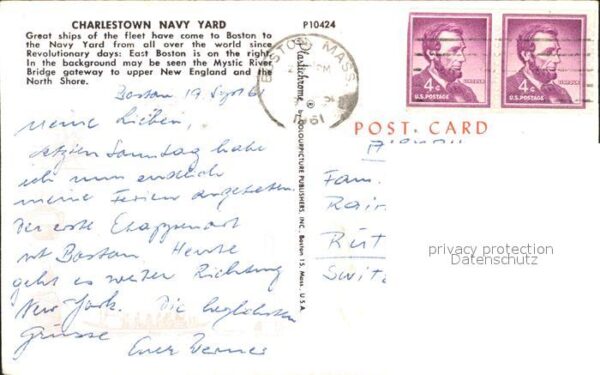 CHARLESTOWN NAVY YARD
P10424
Great ships of the fleet have come to Boston to
the Navy Yard from all over the world since
Revolutionary days: East Boston is on the right.
In the background may be seen the Mystic River
Bridge gateway to upper New England and the
North Shore.
Boston 19. Sept 61
Meine Lieben,
letzten Sonntag habe
ich nun endlich
meine Ferien angetreten.
Der erste Etappenort
ist Boston. Heute
geht es weiter Richtung
New York. Die herzlichsten
Grüsse
Euer Werner
Plastichrome ® by COLOURPICTURE PUBLISHERS, INC., Boston 15, Mass., U.S.A.
BOSTON MASS.
PM
1961
4¢
U.S. POSTAGE
LINCOLN
4¢
U.S. POSTAGE
LINCOLN
POST CARD
Fam.
Rain
Rüt
Switz
privacy protection
Datenschutz